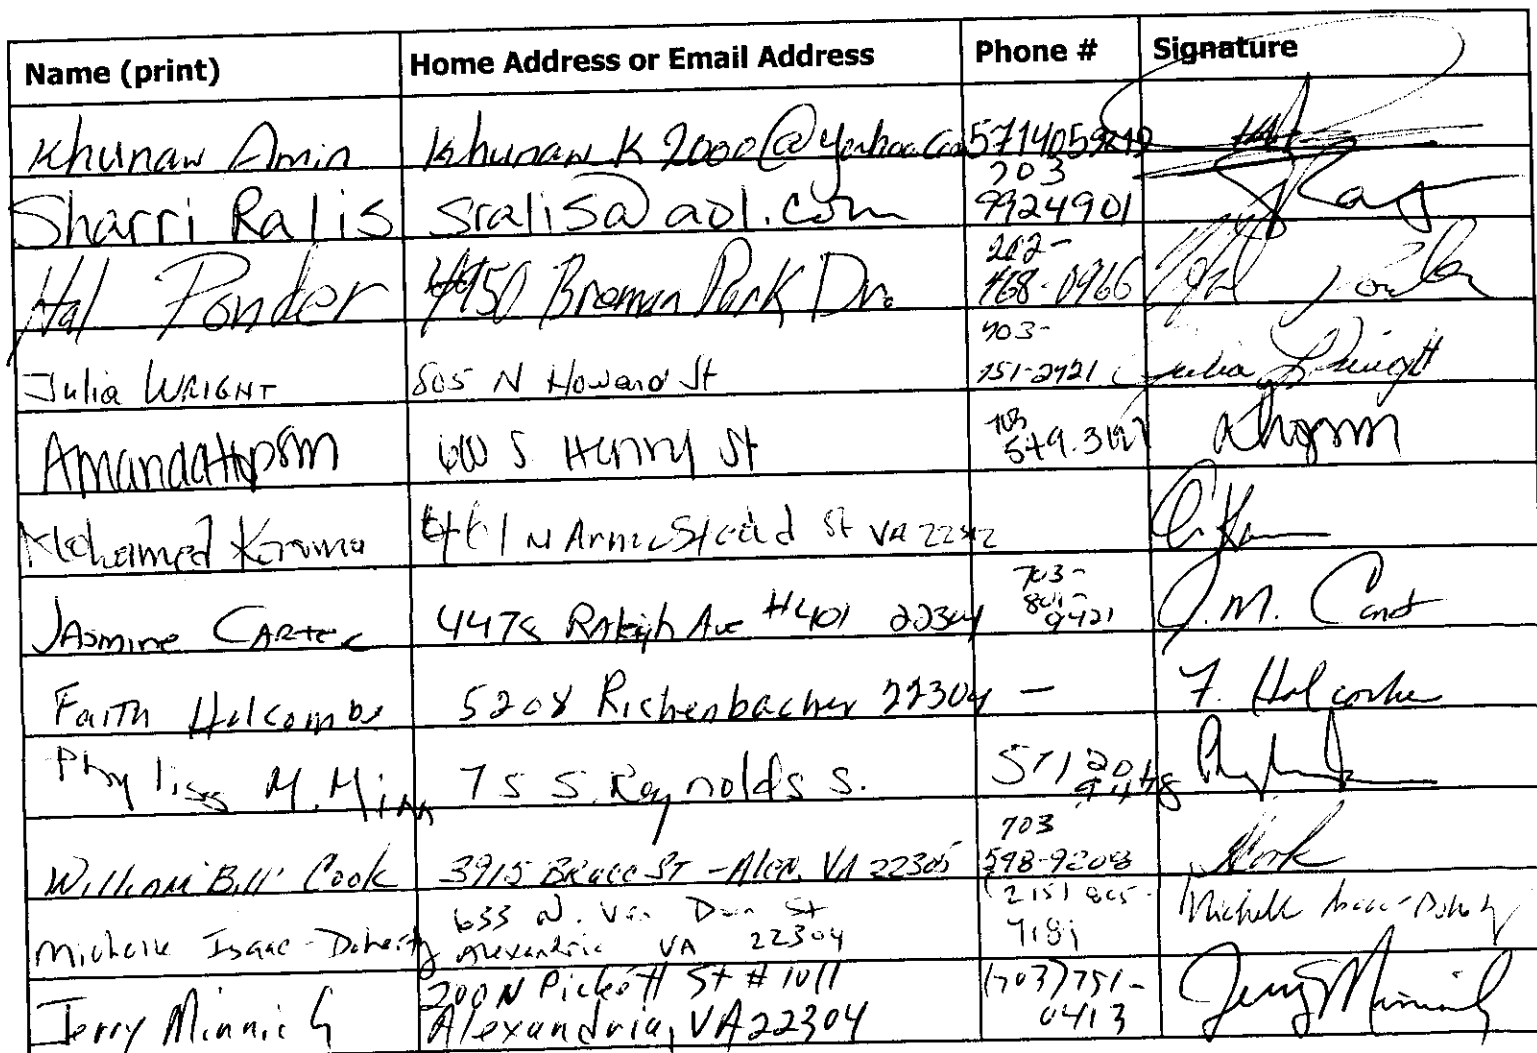 Name (print) Home Address or Email Address Phone # Signature
Khunaw Amin Khunaw K 2000@yahoo.com 571405
Sharri Ralis sralis@aol.com 703
9924901
Hal Ponder 4950 Brenman Park Dr. 202-
468-0966 Hal Ponder
Julia WRIGHT 805 N Howard St 703-
751-2421 Julia Wright
Amanda 600 S. Henry St 703
549.
Mohamed 461 N Armistead St VA
Jasmine Carter 4478 Raleigh Ave #401 22304 703-
801-
9421 J.M.
Faith Holcombe 5208 Richenbacher 22304 - F. Holcombe
Phyliss M. 75 S. Reynolds S. 571
William "Bill" Cook 3915 Bruce St - Alex, VA 22305 703
598-9208
Michelle Isaac-Doherty 633 N. Van Dorn St
Alexandria VA 22304 (215) 865-
7181 Michelle Isaac-Doherty
Jerry Minnich 200 N Pickett St # 1011
Alexandria, VA 22304 (703) 751-
0413 Jerry Minnich